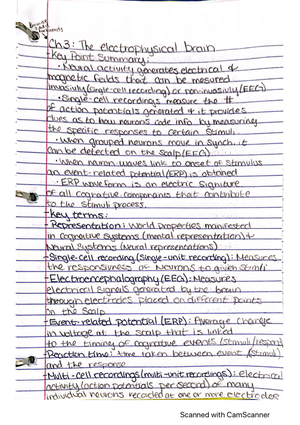 Ch.3: The electrophysical brain
- Key Point Summary:
• Neural activity generates electrical &
magnetic fields that can be measured
invasivly (single-cell recording) or non-invasivly (EEG)
• Single-cell recordings measure the #
of action potentials generated & it provides
clues as to how neurons code info by measuring
the specific responses to certain Stimuli.
• When grouped neurons move in synch. it
can be detected on the scalp (EEG)
• When neuron waves link to onset of Stimulus
an event-related potential (ERP) is obtained
• ERP waveform is an electric Signature
of all cognitive components that contribute
to the Stimuli process.
- Key terms:
- Representation: World Properties manifested
in cognitive systems (mental representation) &
Neural Systems (Neural representations)
- Single-cell recording (Single-unit recording): Measures
the responsiveness of Neurons to given Stimuli
- Electroencephalography (EEG): Measures
electrical Signals generated by the brain
through electrodes placed on different Points
on the Scalp
- Event-related potential (ERP): Average Change
in voltage at the Scalp that is linked
to the timing of cognitive events (stimuli/respon)
- Reaction time: time taken between event (Stimuli)
and the response
- Multi-cell recordings (multi-unit recordings): electrical
activity (action potentials per second) of many
individual neurons recorded at one or more electrodes
Scanned with CamScanner